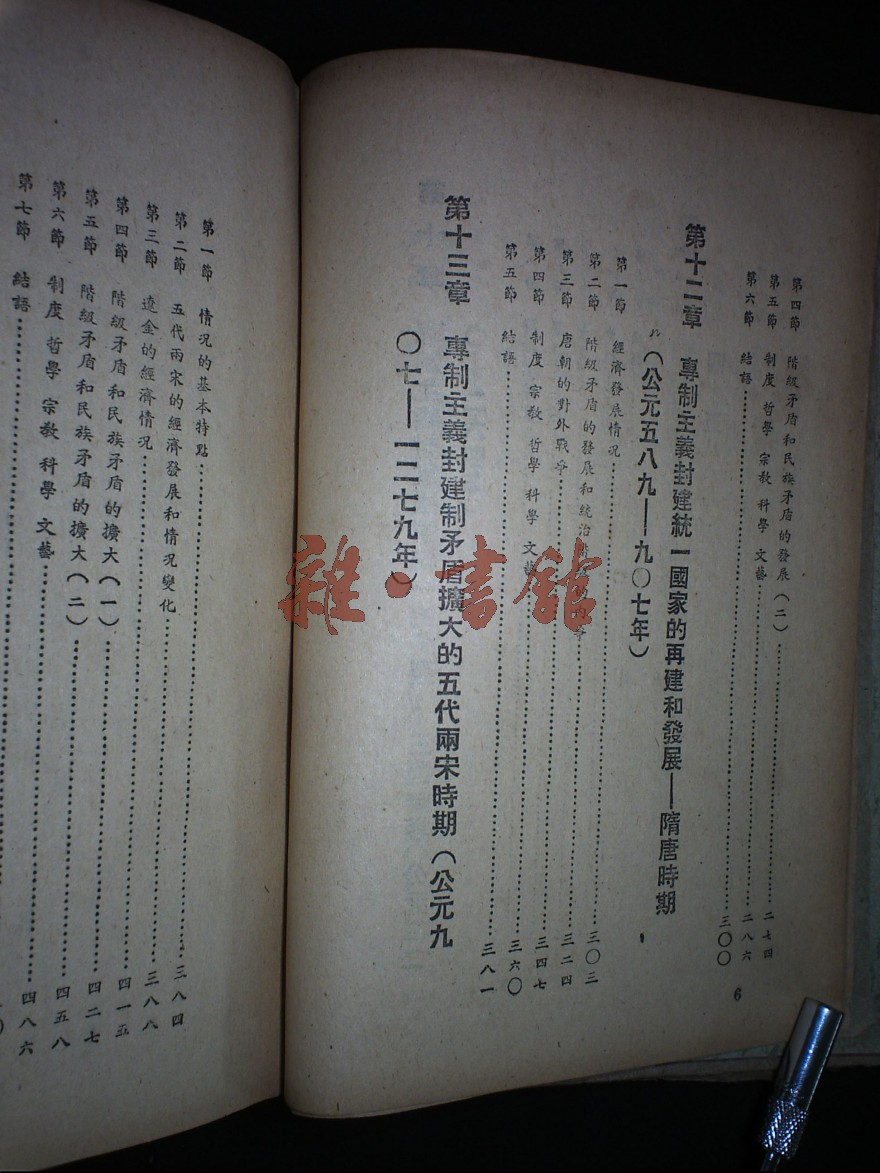 第四節 階級矛盾和民族矛盾的發展(二)……二七四
第五節 制度 哲學 宗教 科學 文藝……二八六
第六節 結語……三〇〇
第十二章 專制主義封建統一國家的再建和發展——隋唐時期
(公元五八九——九〇七年)
第一節 經濟發展情况……三〇三
第二節 階級矛盾的發展和統治……三二四
第三節 唐朝的對外戰爭……三四七
第四節 制度 宗教 哲學 科學 文藝……三六〇
第五節 結語……三八一
第十三章 專制主義封建制矛盾擴大的五代兩宋時期(公元九
〇七——一二七九年)
6
第一節 情况的基本特點……三八四
第二節 五代兩宋的經濟發展和情况變化……三八八
第三節 遼金的經濟情况……四一五
第四節 階級矛盾和民族矛盾的擴大(一)……四二七
第五節 階級矛盾和民族矛盾的擴大(二)……四五八
第六節 制度 哲學 宗教 科學 文藝……四八六
第七節 結語……
雜·書館